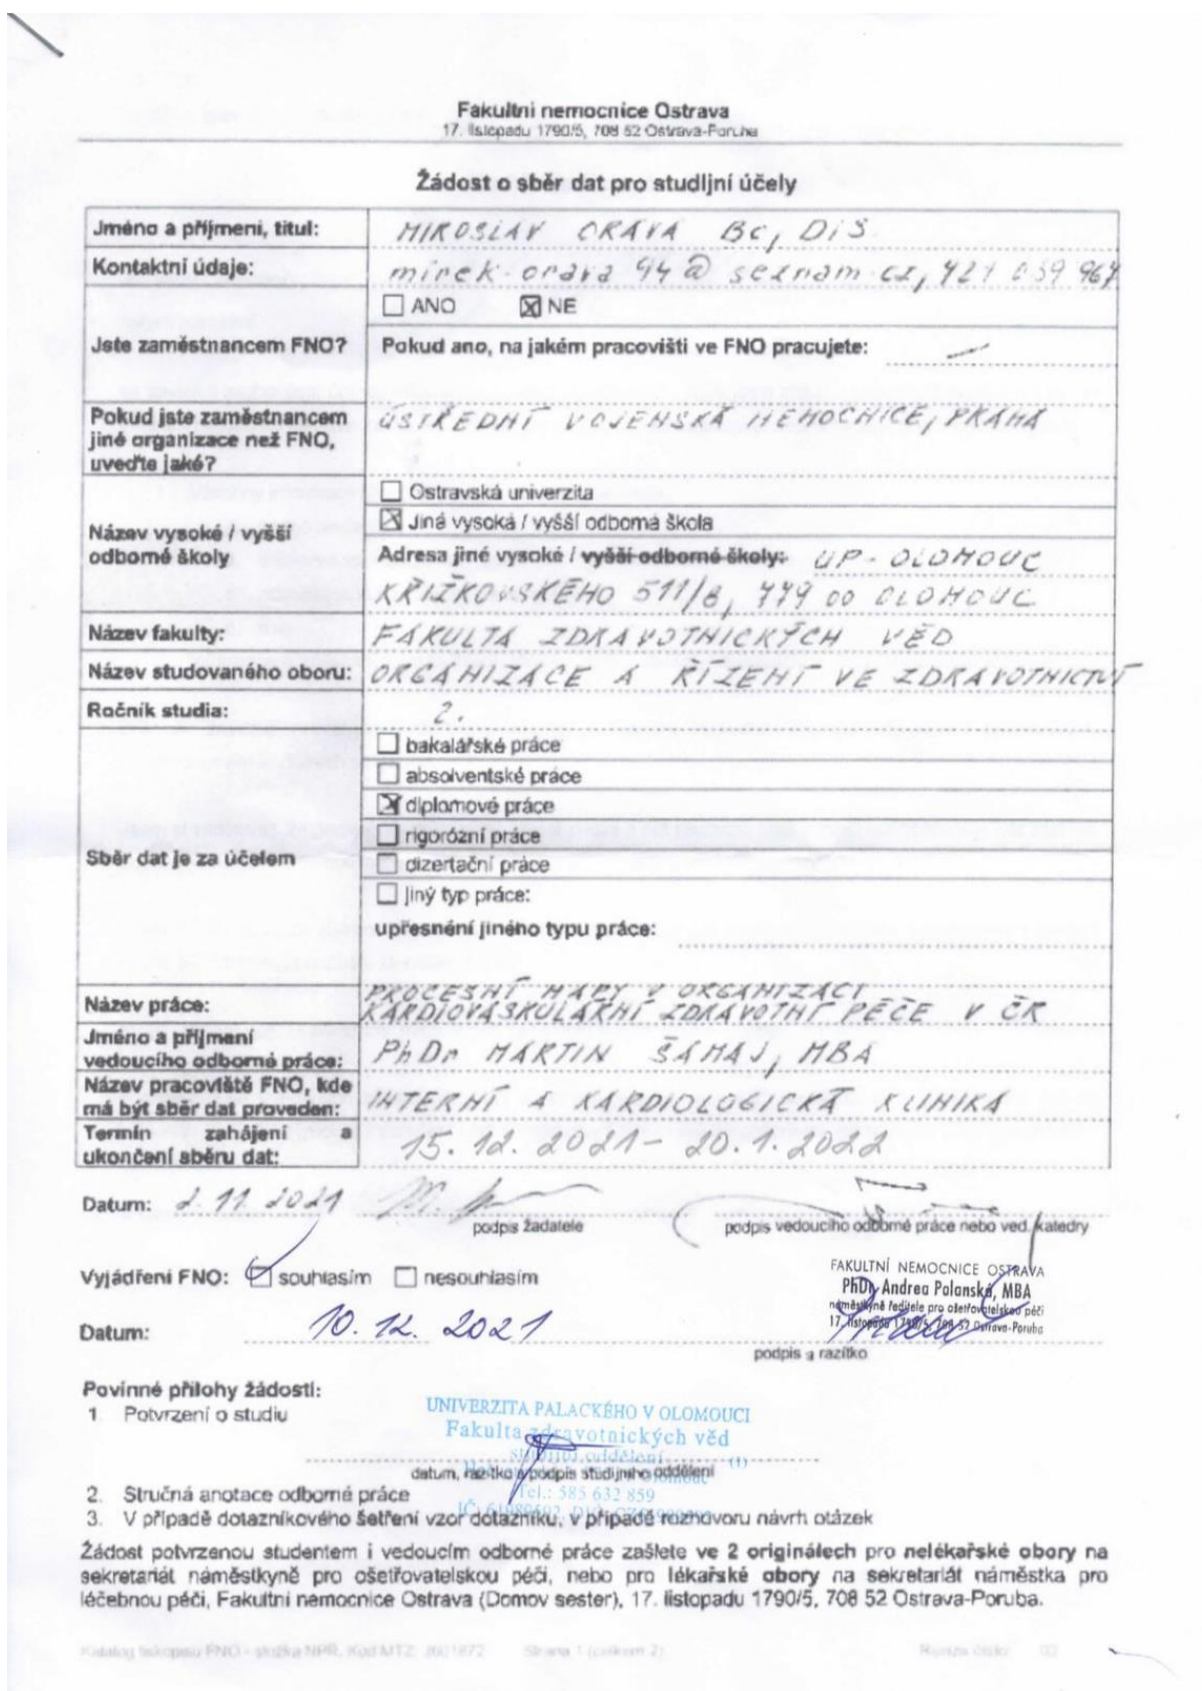 Fakultní nemocnice Ostrava
17. listopadu 1790/5, 708 52 Ostrava-Poruba
Žádost o sběr dat pro studijní účely
Jméno a příjmení, titul: MIROSLAV ORAVA Bc, DiS
Kontaktní údaje: mirek.orava 94@seznam.cz, 721 039 967
ANO NE
Jste zaměstnancem FNO? Pokud ano, na jakém pracovišti ve FNO pracujete:
Pokud jste zaměstnancem ÚSTŘEDNÍ VOJENSKÁ NEMOCNICE, PRAHA
jiné organizace než FNO,
uveďte jaké?
Ostravská univerzita
Jiná vysoká / vyšší odborná škola
Název vysoké / vyšší
odborné školy
Adresa jiné vysoké / vyšší odborné školy: UP - OLOMOUC
KŘÍŽKOVSKÉHO 511/8, 779 00 OLOMOUC
Název fakulty: FAKULTA ZDRAVOTNICKÝCH VĚD
Název studovaného oboru: ORGANIZACE A ŘÍZENÍ VE ZDRAVOTNICTVÍ
Ročník studia: 2.
bakalářské práce
absolventské práce
diplomové práce
rigorózní práce
Sběr dat je za účelem
dizertační práce
jiný typ práce:
upřesnění jiného typu práce:
PROCESNÍ MAPY V ORGANIZACI
Název práce: KARDIOVASKULÁRNÍ ZDRAVOTNÍ PÉČE V ČR
Jméno a příjmení
vedoucího odborné práce: PhDr MARTIN ŠAMAJ, MBA
Název pracoviště FNO, kde
má být sběr dat proveden: INTERNÍ A KARDIOLOGICKÁ KLINIKA
Termín zahájení a
ukončení sběru dat: 15. 12. 2021 - 20. 1. 2022
Datum: 2. 11. 2021
podpis žadatele podpis vedoucího odborné práce nebo ved. katedry
Vyjádření FNO: souhlasím nesouhlasím
FAKULTNÍ NEMOCNICE OSTRAVA
PhDr. Andrea Polanská, MBA
náměstkyně ředitele pro ošetřovatelskou péči
17. listopadu 1790/5, 708 52 Ostrava-Poruba
Datum: 10. 12. 2021
podpis a razítko
Povinné přílohy žádosti:
1. Potvrzení o studiu
UNIVERZITA PALACKÉHO V OLOMOUCI
Fakulta zdravotnických věd
studijní oddělení (1)
datum, razítko a podpis studijního oddělení
Tel.: 585 632 859
2. Stručná anotace odborné práce
3. V případě dotazníkového šetření vzor dotazníku, v případě rozhovoru návrh otázek
Žádost potvrzenou studentem i vedoucím odborné práce zašlete ve 2 originálech pro nelékařské obory na
sekretariát náměstkyně pro ošetřovatelskou péči, nebo pro lékařské obory na sekretariát náměstka pro
léčebnou péči, Fakultní nemocnice Ostrava (Domov sester), 17. listopadu 1790/5, 708 52 Ostrava-Poruba.
Katalog tiskopisů FNO - složka NPR, Kód MTZ: Strana 1 (celkem 2) Revize číslo: